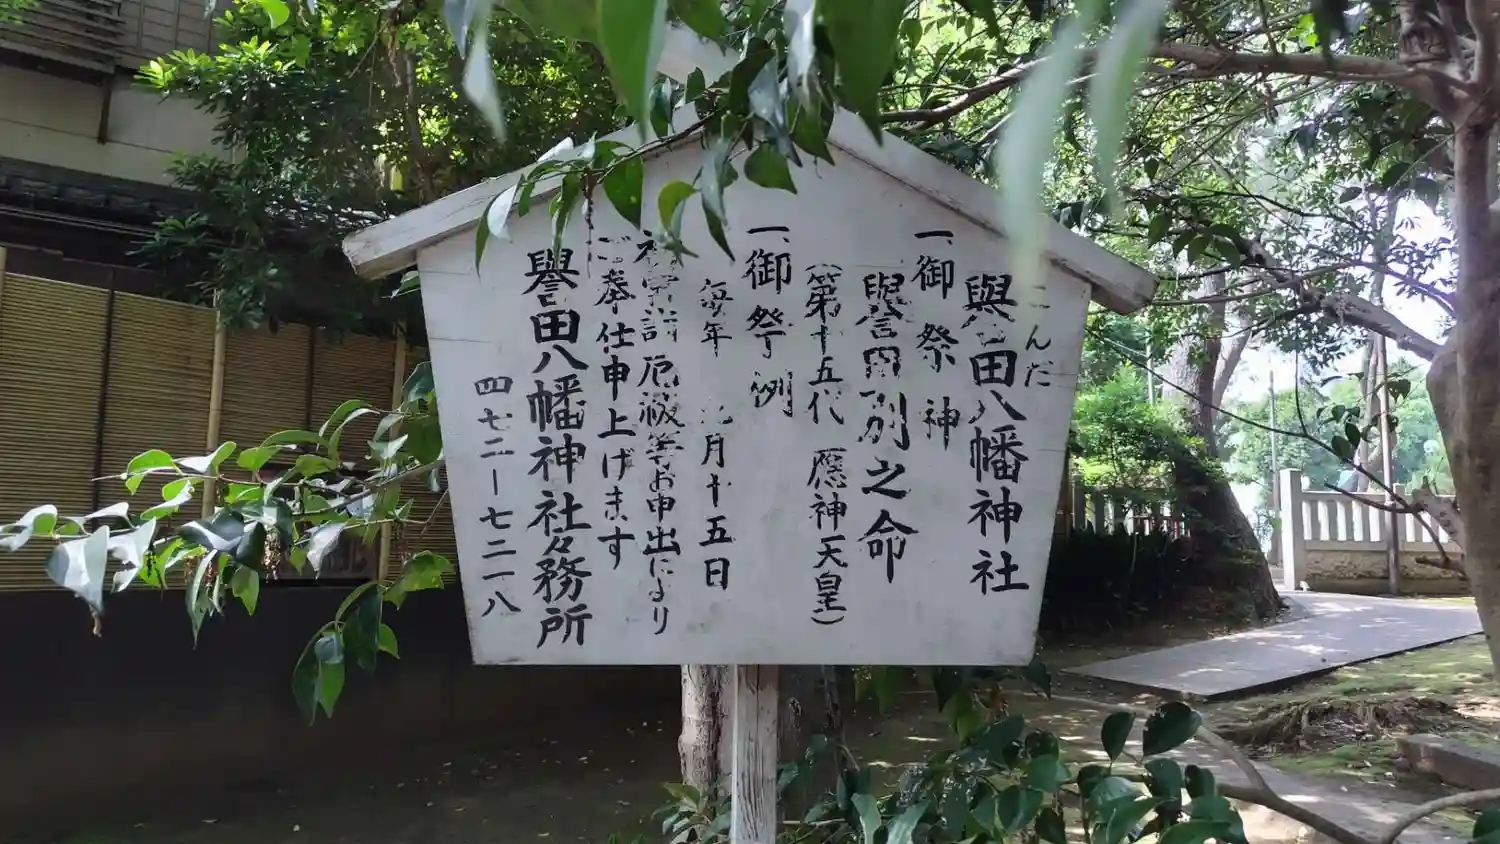 こんだ
譽田八幡神社
一、御祭神
譽田別之命
(第十五代 應神天皇)
一、御祭例
毎年 九月十五日
初宮詣厄祓等お申出により
ご奉仕申上げます
譽田八幡神社々務所
四七二ー七二一八